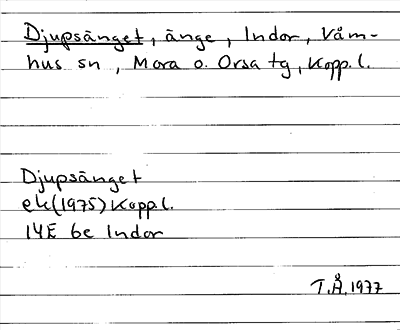 Djupsänget, änge, Indor, Våm-
hus sn, Mora o. Orsa tg, Kopp.l.
Djupsänget
ek(1975) Kopp.l.
14E 6e Indor
T.Å. 1977